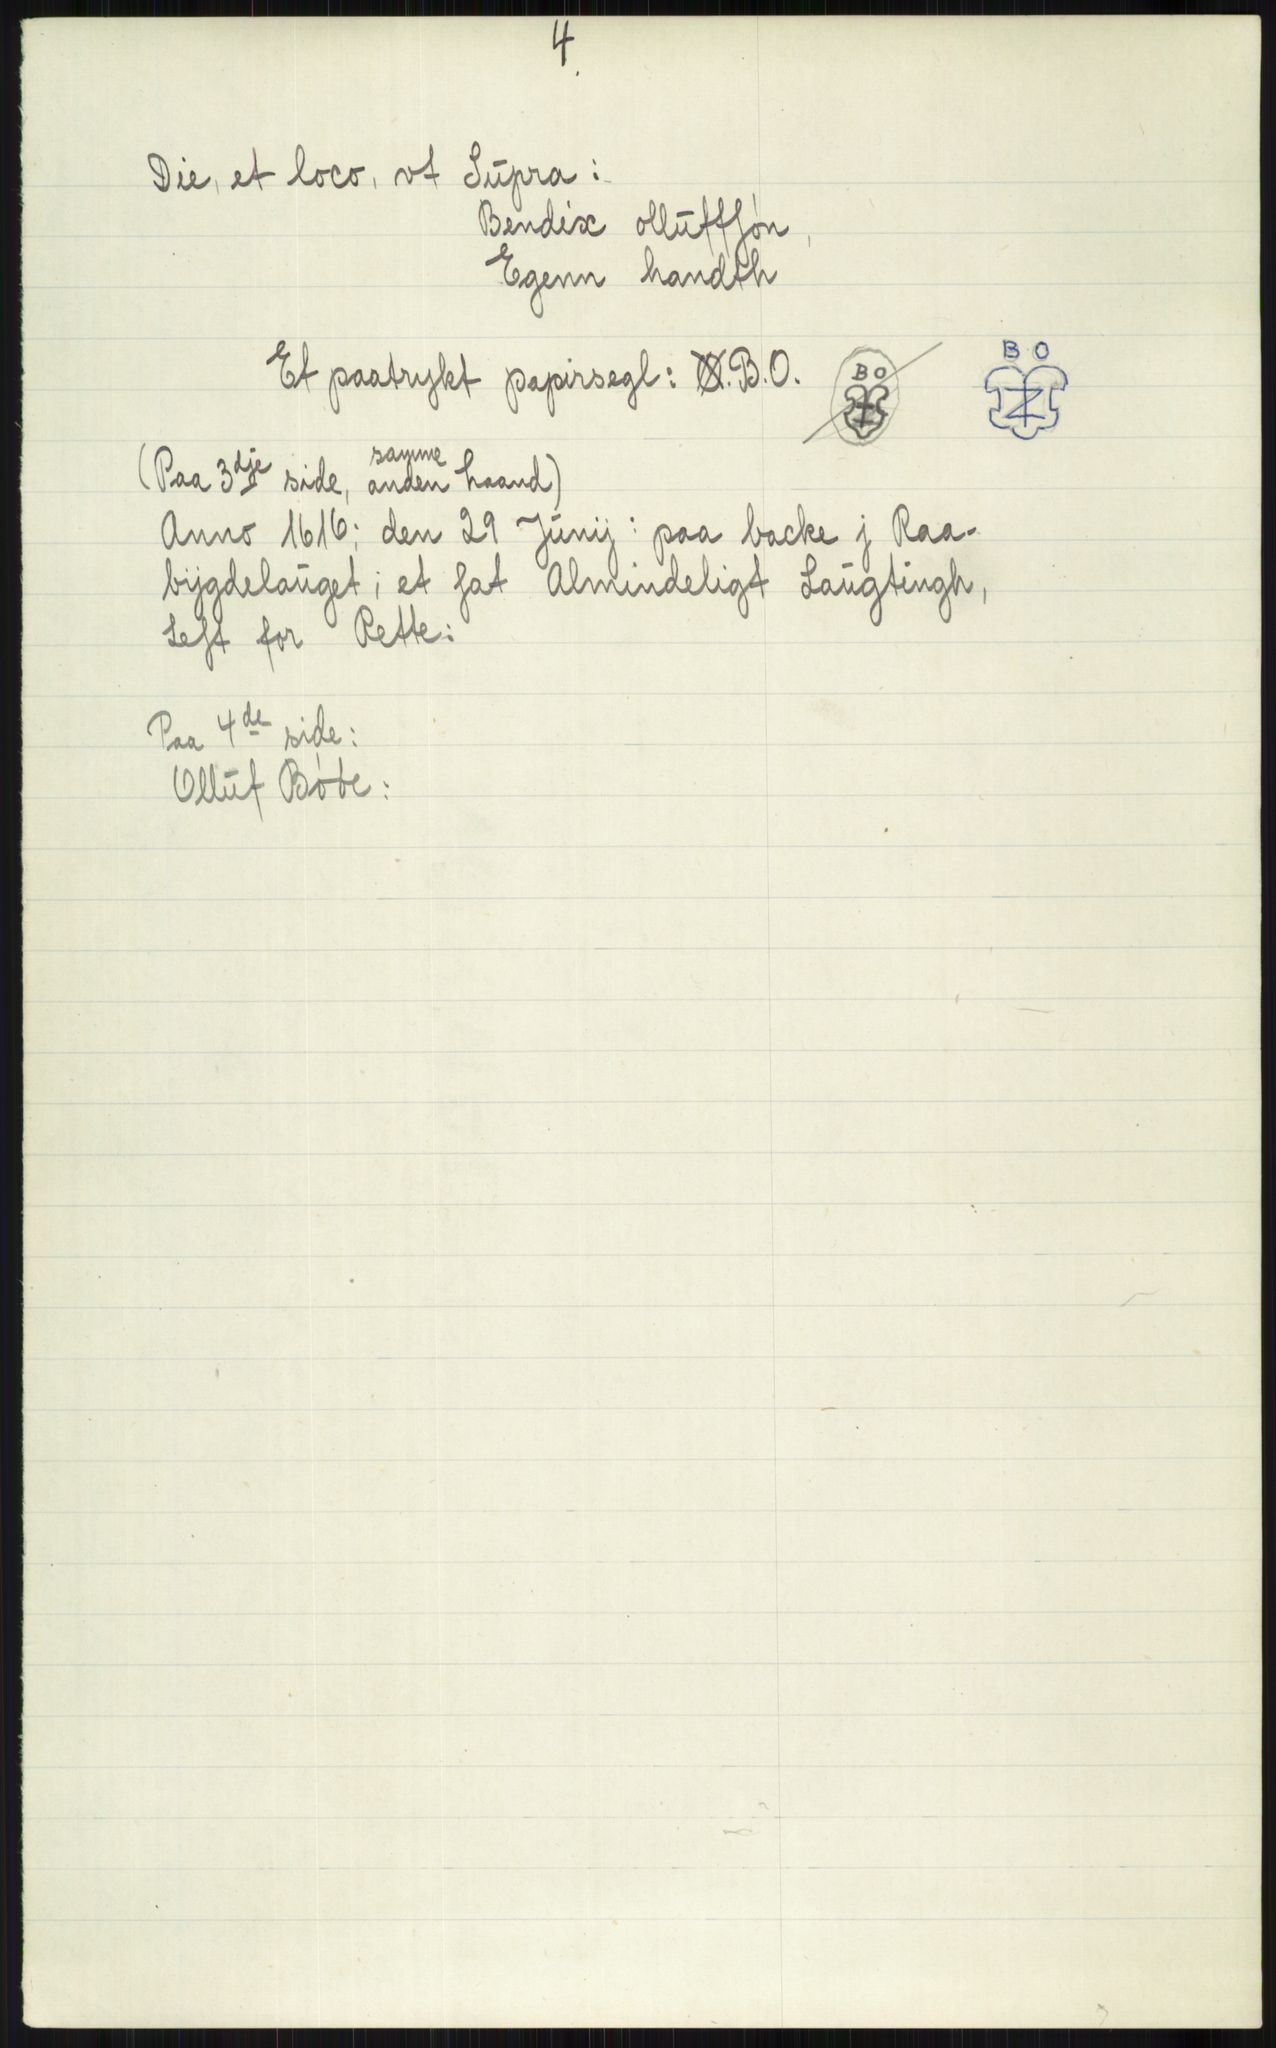 4.
Die, et loco, vt Supra:
Bendix olluffsøn,
Egenn handth
Et paatrykt papirsegl: B.O.
B O
B O
(Paa 3dje side, samme anden haand)
Anno 1616; den 29 Junij: paa backe j Raa-
bijgdelauget; et sat Almindeligt Laugtingh,
Lest for Rette:
Paa 4de side:
Olluf Bøbe: